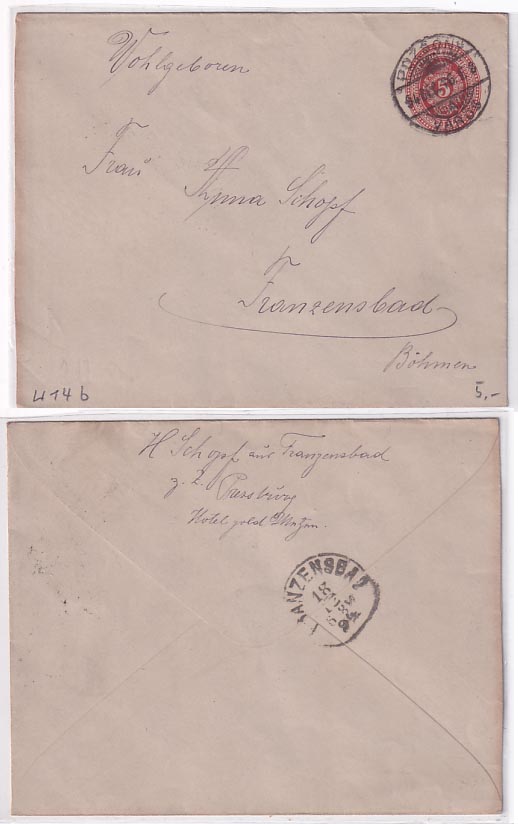 Wohlgeboren
POZSONY
5
Frau
Schopf
Franzensbad
Böhmen
U 14 b
5,-
H Schopf aus Franzensbad
z. Z. Pressburg
Hotel gold
FRANZENSBAD
18
94